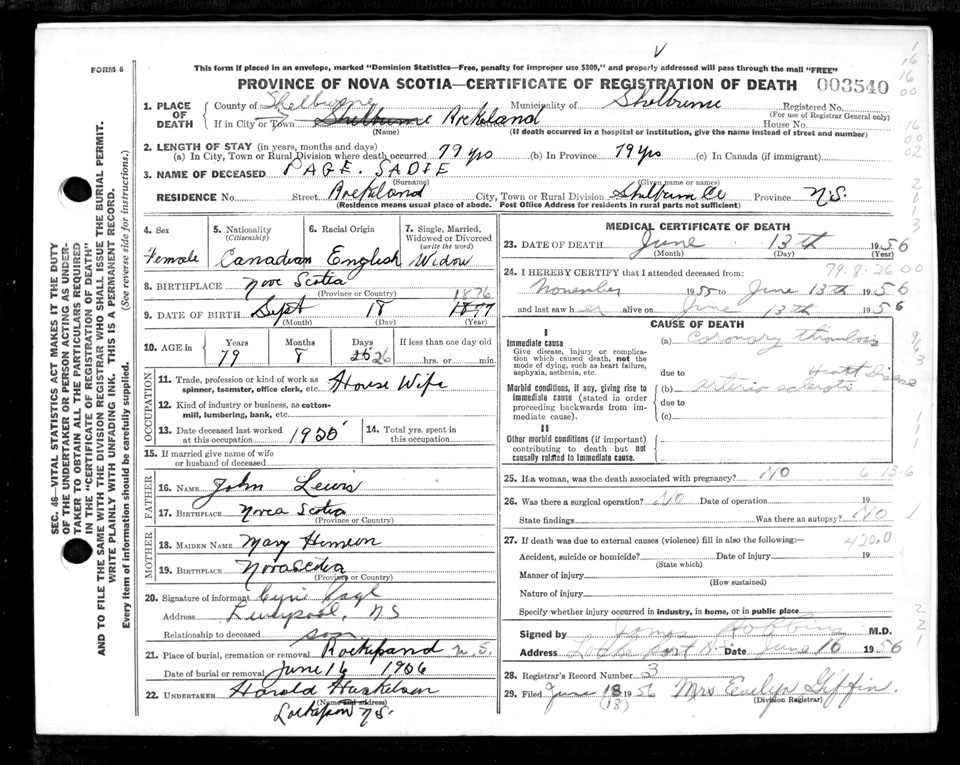 FORM 6
This form if placed in an envelope, marked “Dominion Statistics—Free, penalty for improper use $300,” and properly addressed will pass through the mail “FREE”
PROVINCE OF NOVA SCOTIA—CERTIFICATE OF REGISTRATION OF DEATH 003540
SEC. 46—VITAL STATISTICS ACT MAKES IT THE DUTY
OF THE UNDERTAKER OR PERSON ACTING AS UNDER-
TAKER TO OBTAIN ALL THE PARTICULARS REQUIRED
IN THE “CERTIFICATE OF REGISTRATION OF DEATH”
AND TO FILE THE SAME WITH THE DIVISION REGISTRAR WHO SHALL ISSUE THE BURIAL PERMIT.
WRITE PLAINLY WITH UNFADING INK. THIS IS A PERMANENT RECORD.
Every item of information should be carefully supplied. (See reverse side for instructions.)
1. PLACE OF DEATH County of Shelburne Municipality of Shelburne Registered No.
(For use of Registrar General only)
If in City or Town Shelburne Rockland Street House No.
(Name) (If death occurred in a hospital or institution, give the name instead of street and number)
2. LENGTH OF STAY (in years, months and days)
(a) In City, Town or Rural Division where death occurred 79 yrs (b) In Province 79 yrs (c) In Canada (if immigrant)
3. NAME OF DECEASED PAGE. SADIE
(Surname) (Given name or names)
RESIDENCE No. Street Rockland City, Town or Rural Division Shelburn Co Province N.S.
(Residence means usual place of abode. Post Office Address for residents in rural parts not sufficient)
4. Sex Female
5. Nationality (Citizenship) Canadian
6. Racial Origin English
7. Single, Married, Widowed or Divorced (write the word) Widow
8. BIRTHPLACE Nove Scotia
(Province or Country)
9. DATE OF BIRTH Sept 18 1876
(Month) (Day) (Year)
10. AGE in Years Months Days If less than one day old
79 8 26 hrs. or min.
OCCUPATION
11. Trade, profession or kind of work as spinner, teamster, office clerk, etc. House Wife
12. Kind of industry or business, as cotton-mill, lumbering, bank, etc.
13. Date deceased last worked at this occupation 1955
14. Total yrs. spent in this occupation
15. If married give name of wife or husband of deceased
FATHER
16. NAME John Lewis
17. BIRTHPLACE Nova Scotia
(Province or Country)
MOTHER
18. MAIDEN NAME Mary
19. BIRTHPLACE Nova Scotia
(Province or Country)
20. Signature of informant Page
Address Liverpool, NS
Relationship to deceased son
21. Place of burial, cremation or removal Rockland N.S.
Date of burial or removal June 16 1956
22. UNDERTAKER Harold Huskelson
(Name and address)
Lockeport NS.
MEDICAL CERTIFICATE OF DEATH
23. DATE OF DEATH June 13th 1956
(Month) (Day) (Year)
79-8-26 00
24. I HEREBY CERTIFY that I attended deceased from:
November 1955 to June 13th 1956
and last saw her alive on June 13th 1956
CAUSE OF DEATH
I
Immediate cause
Give disease, injury or complication which caused death, not the mode of dying, such as heart failure, asphyxia, asthenia, etc.
(a) Coronary thrombosis
due to
Morbid conditions, if any, giving rise to immediate cause (stated in order proceeding backwards from immediate cause).
(b) Arterio sclerotic Heart Disease
due to
(c)
II
Other morbid conditions (if important) contributing to death but not causally related to immediate cause.
25. If a woman, was the death associated with pregnancy? No 6-13-6
26. Was there a surgical operation? No Date of operation 19
State findings Was there an autopsy? No
27. If death was due to external causes (violence) fill in also the following:— 420.0
Accident, suicide or homicide? Date of injury 19
(State which)
Manner of injury
(How sustained)
Nature of injury
Specify whether injury occurred in industry, in home, or in public place
Signed by Robbins M.D.
Address Lockeport N.S. Date June 16 1956
28. Registrar's Record Number 3
29. Filed June 18 1956 Mrs Evelyn Giffin.
(18) (Division Registrar)